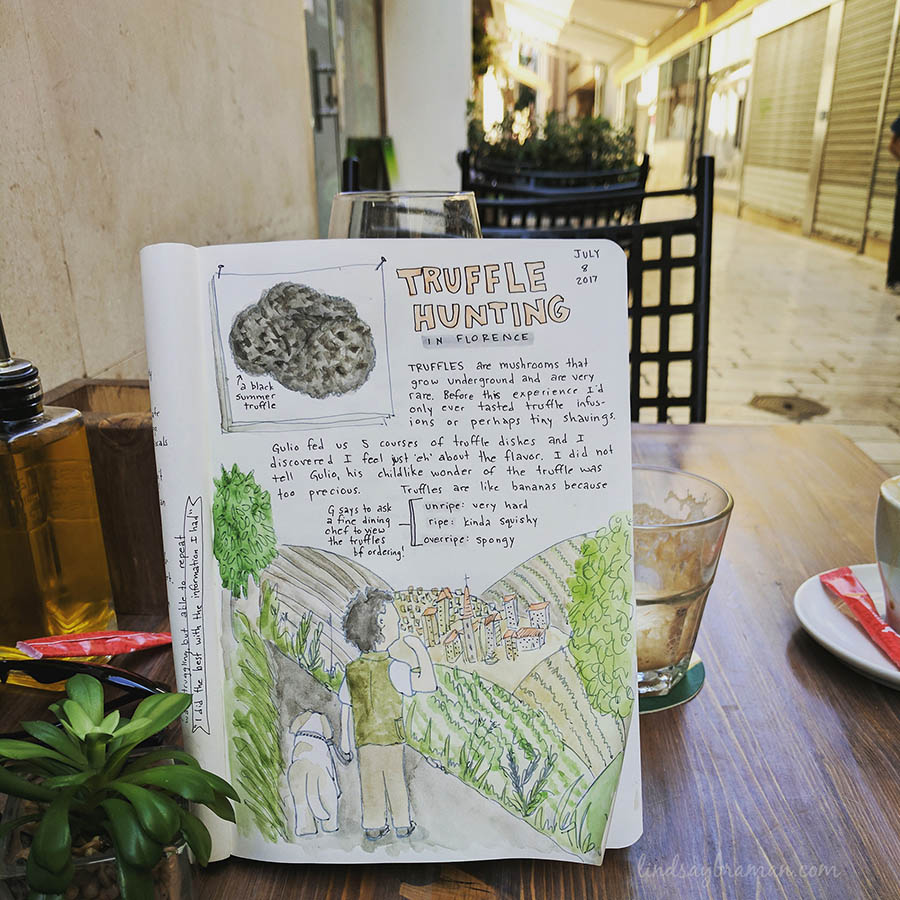 TRUFFLE
HUNTING
IN FLORENCE
JULY
8
2017
a black
summer
truffle
TRUFFLES are mushrooms that
grow underground and are very
rare. Before this experience I'd
only ever tasted truffle infus-
ions or perhaps tiny shavings.
Gulio fed us 5 courses of truffle dishes and I
discovered I feel just 'eh' about the flavor. I did not
tell Gulio, his childlike wonder of the truffle was
too precious. Truffles are like bananas because
G says to ask
a fine dining
chef to view
the truffles
bf ordering!
unripe: very hard
ripe: kinda squishy
overripe: spongy
struggling but able to repeat
"I did the best with the information I had"
lindsaybraman.com